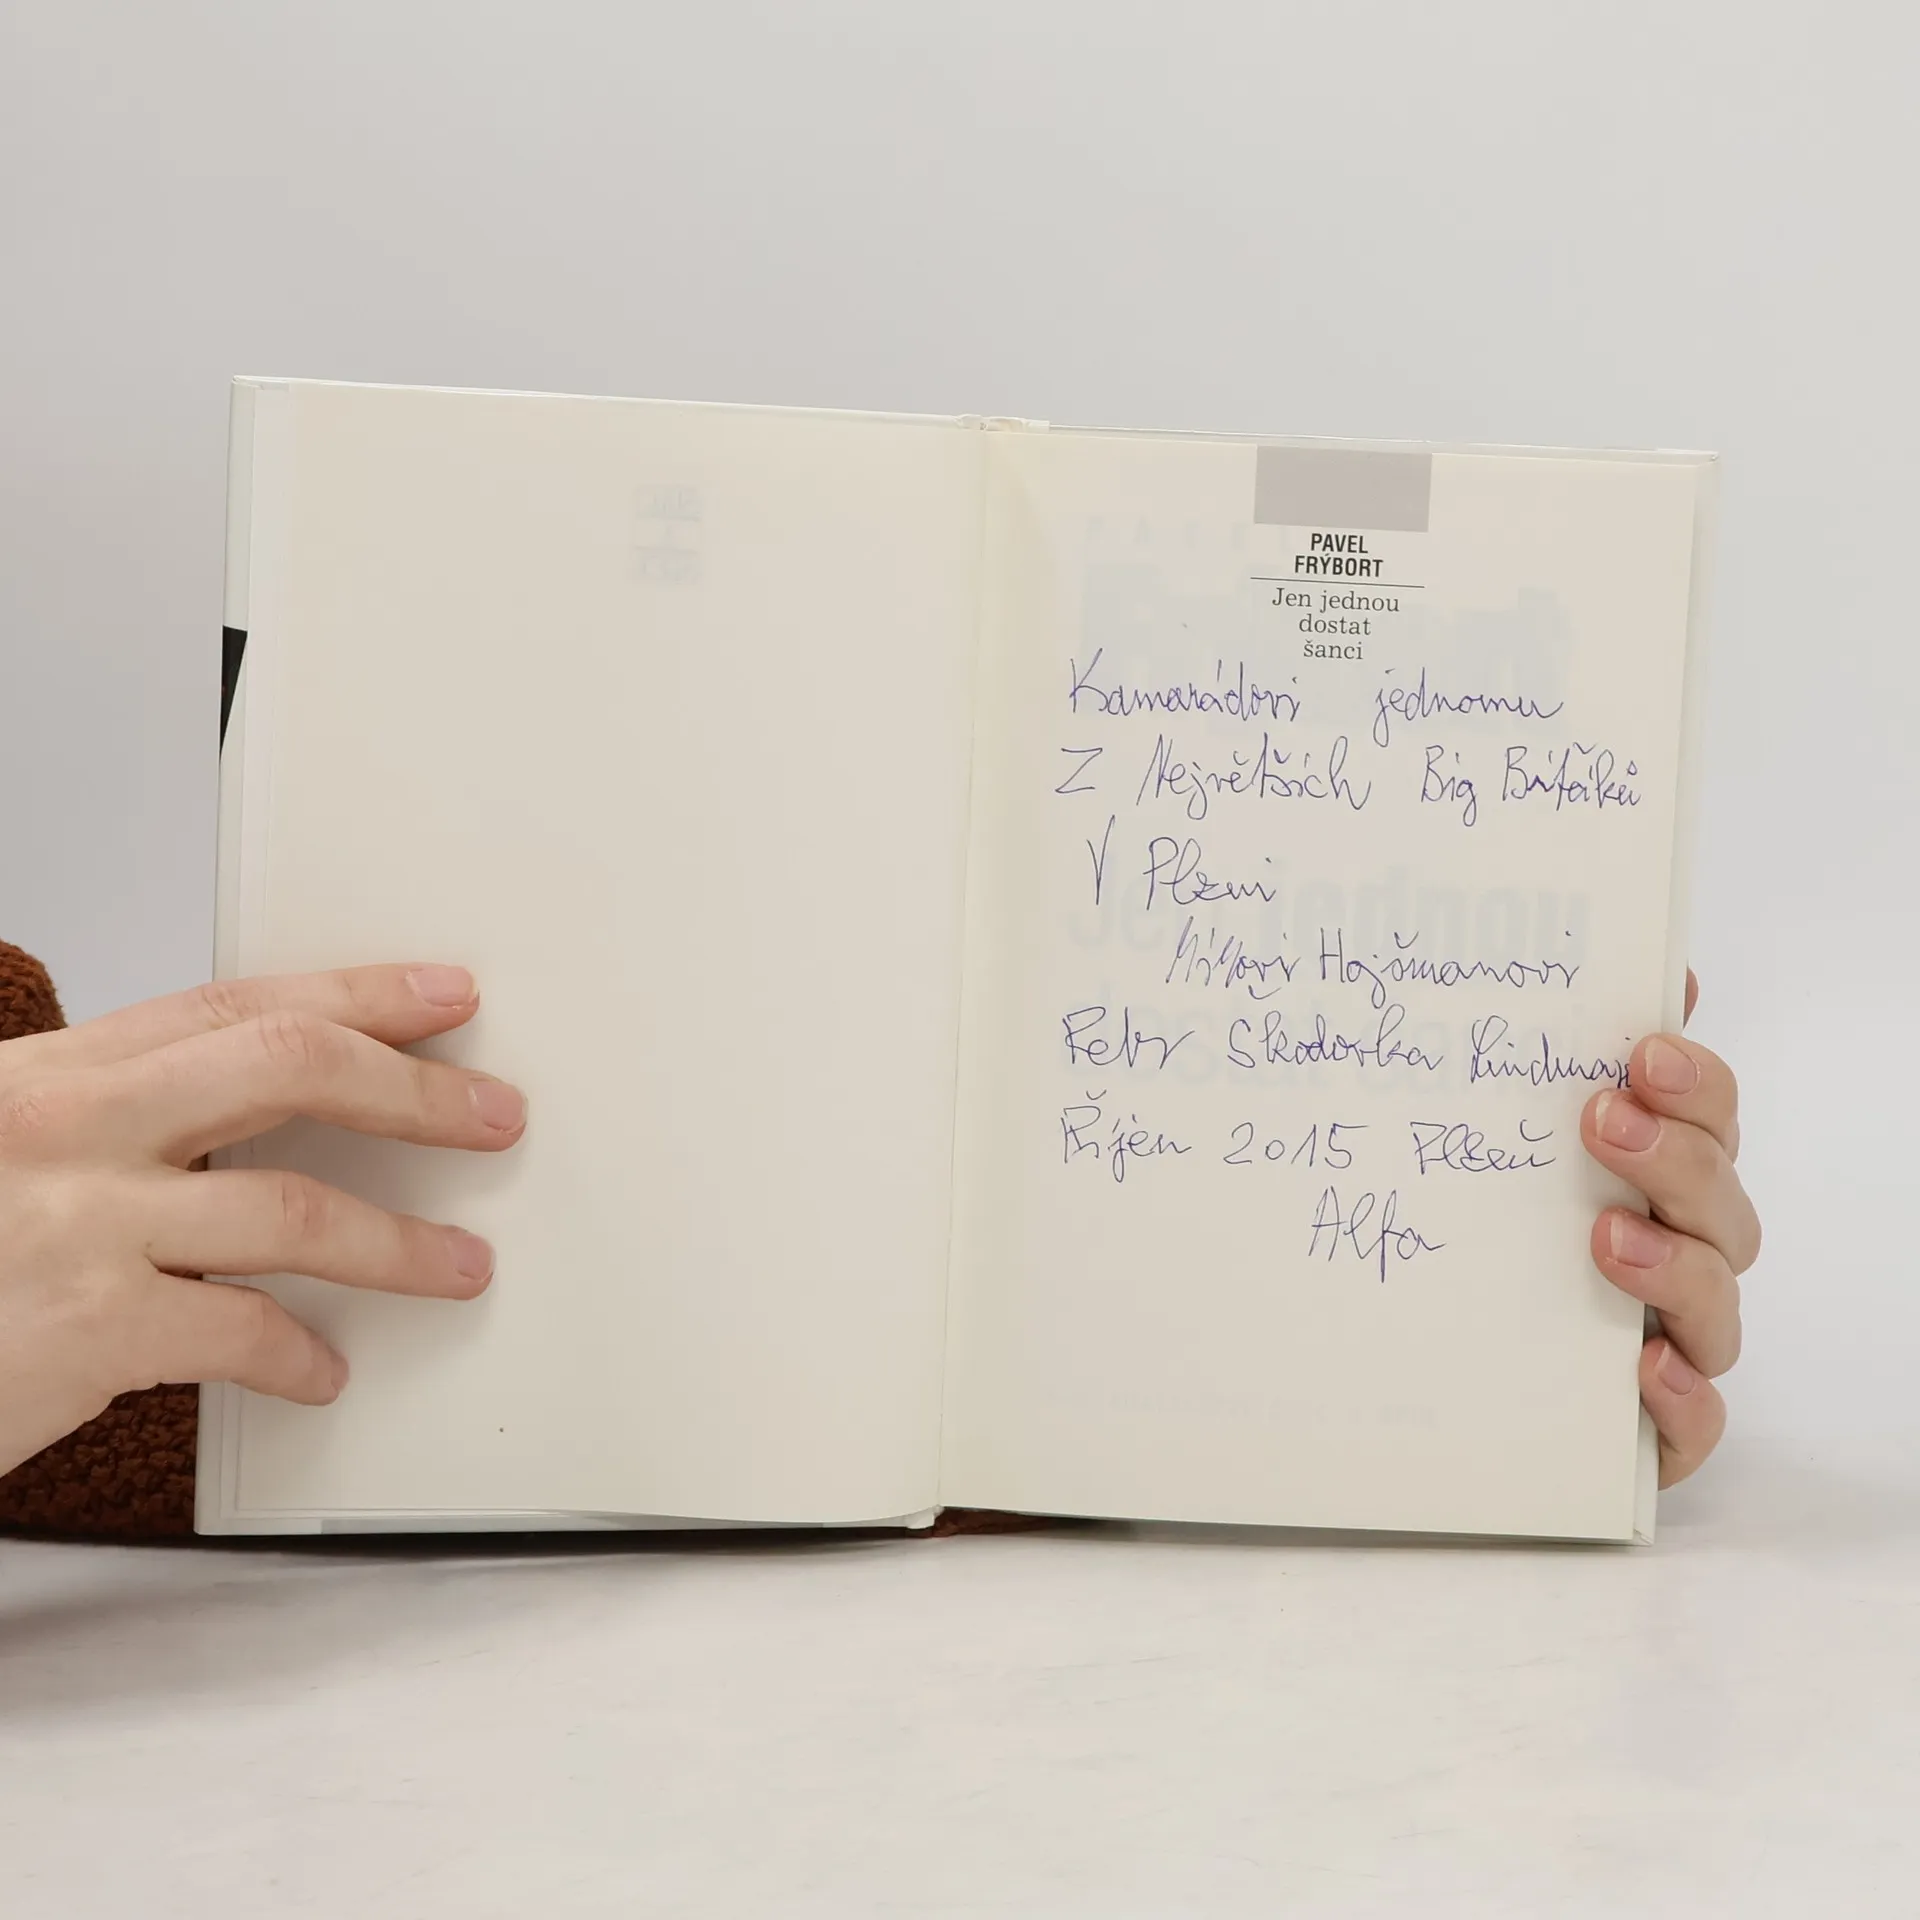 PAVEL
FRÝBORT
Jen jednou
dostat
šanci
Kamarádovi jednomu
Z Největších Big Bíťáků
V Plzni
Hajšmanovi
Petr Škodovka
Říjen 2015 Plzeň
Alfa